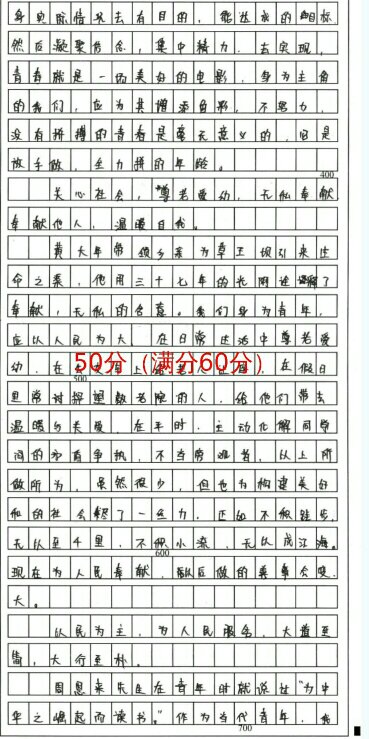 身实际情况去有目的，能达成的目标
然后凝聚信念，集中精力，去实现，
青春就是一场美好的电影，身为主角
的我们，应为其增添色彩，不努力，
没有拼搏的青春是毫无意义的，但是
放手做，全力拼的年龄。
400
关心社会，尊老爱幼，无私奉献
奉献他人，温暖自我。
黄大年带领乡亲为草王坝引来生
命之渠，他用三十七年的光阴诠释了
奉献，无私的含意。我们身为青年，
应以人民为大，在日常生活中尊老爱
幼，在公 上 老人 在假日
50分（满分60分）
500
里常 探望敬老院的人，给他们带去
温暖与关爱，在平时，主动化解同学
间的矛盾争执，不当旁观者，以上所
做所为，虽然很少，但也为构建美好
和的社会 了一丝力，正如不积跬步，
无以至千里，不积小流，无以成江海。
600
现在为人民奉献， 后做的 会变
大。
以民为主，为人民服务，大道至
简，大行至朴。
周恩来先生在青年时就说过“为中
华之崛起而读书。”作为当代青年，我
700